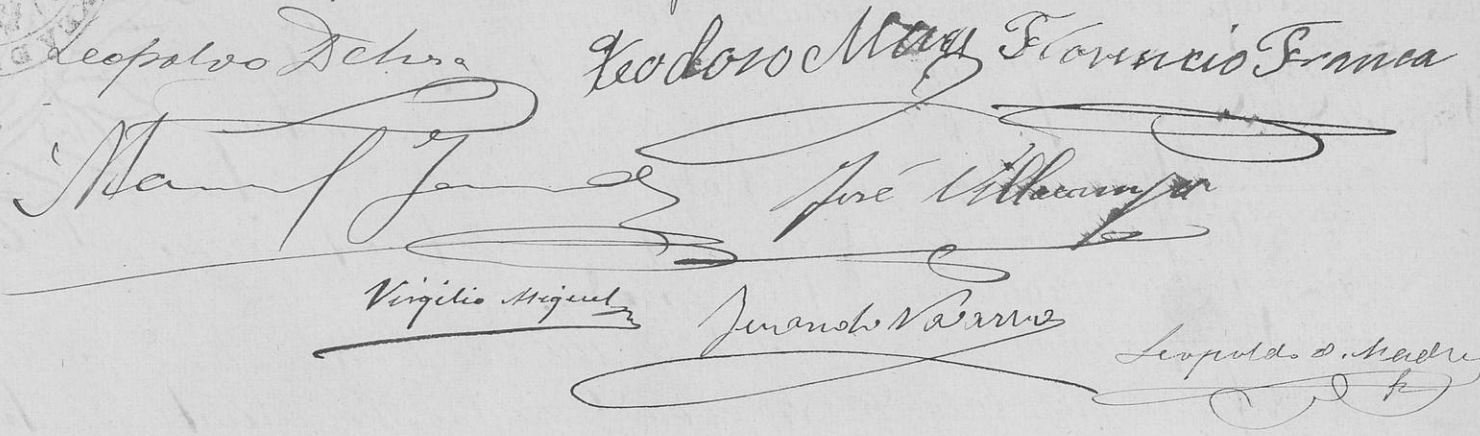 Leopoldo Teodoro May Florencio Franca
Manuel José Villacampa
Virgilio Miguel Fernando Navarro
Leopoldo O. Madre